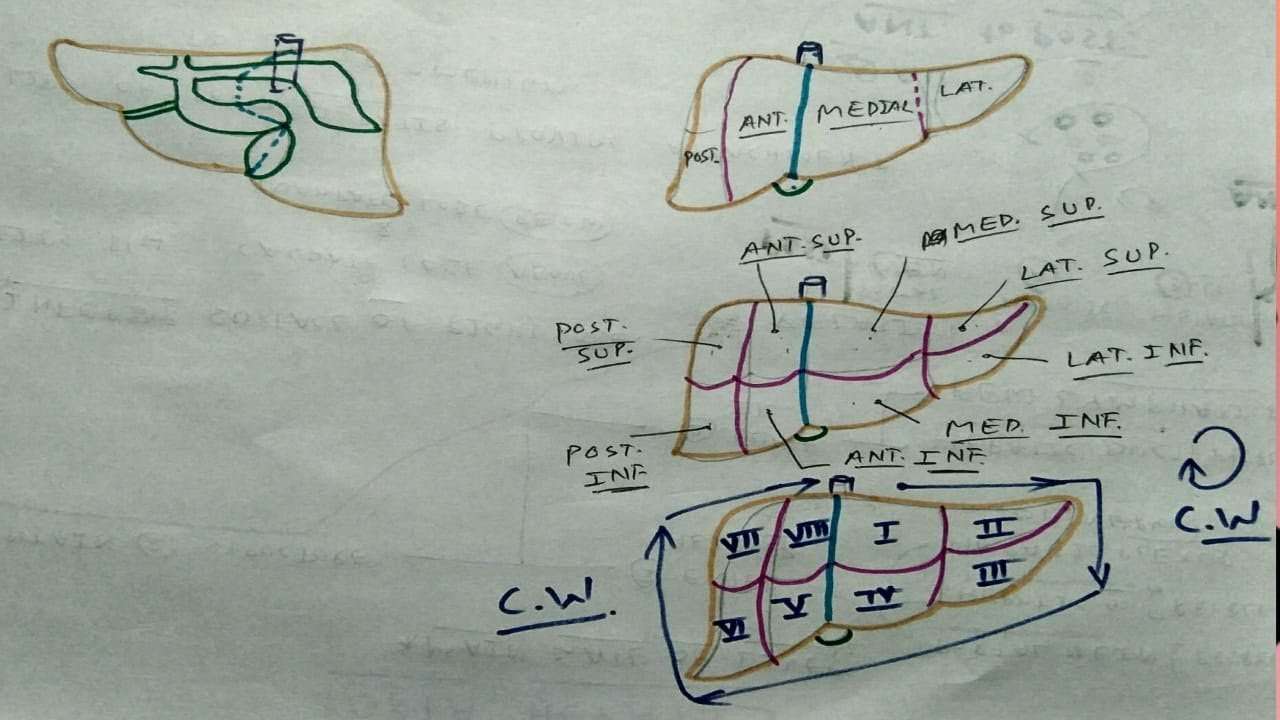 ANT.
MEDIAL
LAT.
POST.
ANT. SUP.
MED. SUP.
LAT. SUP.
POST.
SUP.
LAT. INF.
MED. INF.
POST.
INF
ANT. INF.
C.W
VII VIII I II
III
VI V IV
C.W.